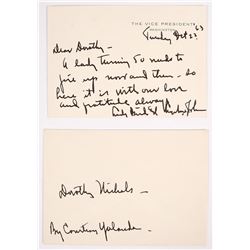 THE VICE PRESIDENT
WASHINGTON
Tuesday Oct 23
63
Dear Dorothy -
A lady turning 50 needs to
give up now and then - so
here it is with our love
and gratitude always
Lady Bird &
Dorothy Nichols -
By Courtesy